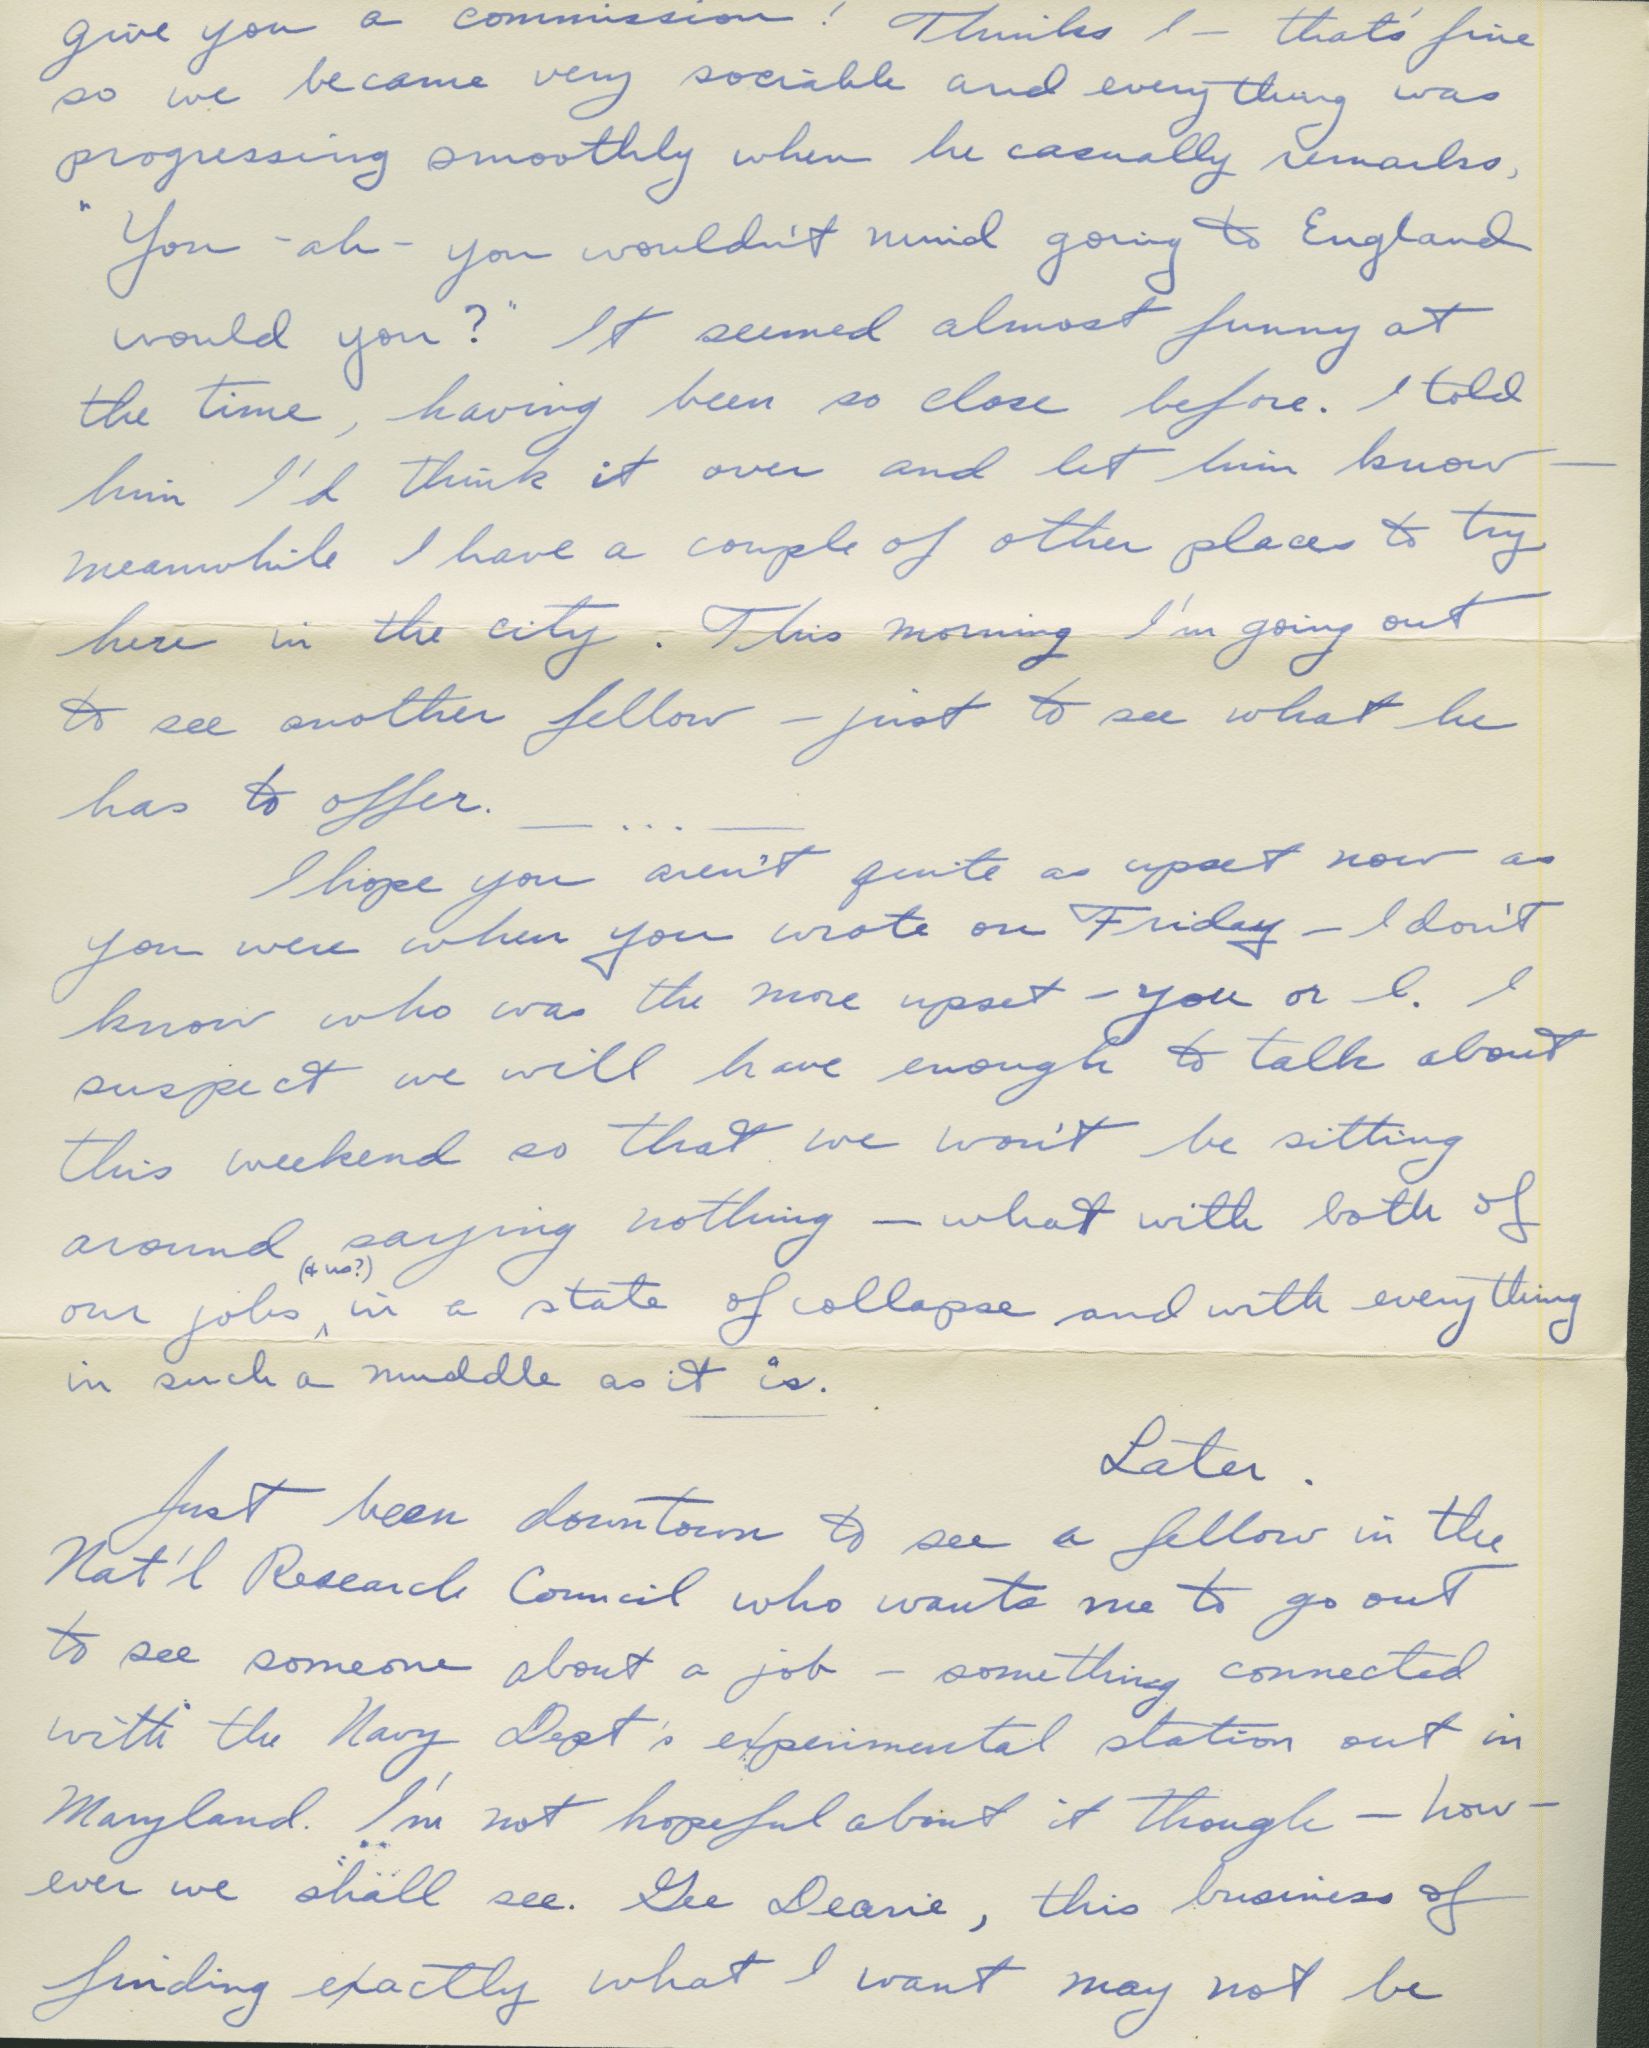 give you a commission! Thinks I - that's fine
so we became very sociable and everything was
progressing smoothly when he casually remarks,
"You - ah - you wouldn't mind going to England
would you?" It seemed almost funny at
the time, having been so close before. I told
him I'd think it over and let him know —
meanwhile I have a couple of other places to try
here in the city. This morning I'm going out
to see another fellow - just to see what he
has to offer. — ... —
I hope you aren't quite as upset now as
you were when you wrote on Friday - I don't
know who was the more upset - you or I. I
suspect we will have enough to talk about
this weekend so that we won't be sitting
around saying nothing - what with both of
(& us?)
our jobs ^ in a state of collapse and with everything
in such a muddle as it is.
Later.
Just been downtown to see a fellow in the
Nat'l Research Council who wants me to go out
to see someone about a job - something connected
with the Navy Dept's experimental station out in
Maryland. I'm not hopeful about it though - how-
ever we shall see. Gee Dearie, this business of
finding exactly what I want may not be